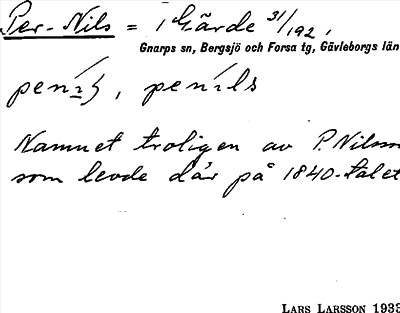 Per-Nils = i Gärde 31/192.
Gnarps sn, Bergsjö och Forsa tg, Gävleborgs län
penıls
Namnet troligen av P. Nilsson
som levde där på 1840-talet
LARS LARSSON 1933